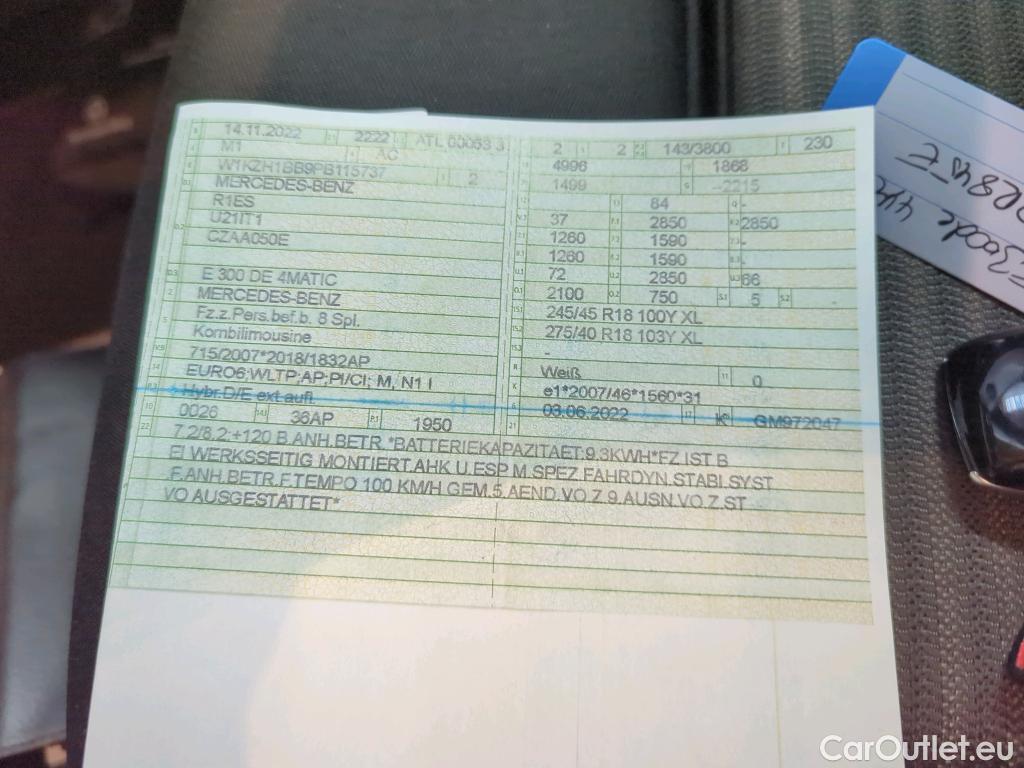 14.11.2022 2222 ATL 00053 3
M1 AC
W1KZH1BB9PB115737 2
MERCEDES-BENZ
R1ES
U21IT1
CZAA050E
E 300 DE 4MATIC
MERCEDES-BENZ
Fz.z.Pers.bef.b. 8 Spl.
Kombilimousine
715/2007*2018/1832AP
EURO6;WLTP;AP;PI/CI; M, N1 I
Hybr.D/E ext.aufl
0026 36AP 1950
2 2 143/3800 230
4996 1868
1499 --2215
84 -
37 2850 2850
1260 1590 -
1260 1590 -
72 2850 66
2100 750 5 -
245/45 R18 100Y XL
275/40 R18 103Y XL
-
Weiß 0
e1*2007/46*1560*31
03.06.2022 K GM972047
7.2/8.2:+120 B.ANH.BETR.*BATTERIEKAPAZITAET:9,3KWH*FZ.IST B
EI WERKSSEITIG MONTIERT.AHK U.ESP M.SPEZ.FAHRDYN.STABI.SYST
F.ANH.BETR.F.TEMPO 100 KM/H GEM.5.AEND.VO Z.9.AUSN.VO.Z.ST
VO AUSGESTATTET*
CarOutlet.eu